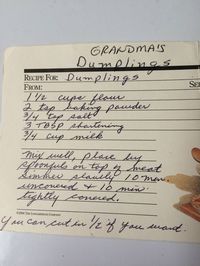 GRANDMA'S
Dumplings
RECIPE FOR: Dumplings
FROM:
1 1/2 cups flour
2 tsp baking powder
3/4 tsp salt
3 TBSP shortening
3/4 cup milk
Mix well, place by
spoonfuls on top of meat
Simmer slowly 10 min
uncovered + 10 min
tightly covered.
You can cut in 1/2 if you want.